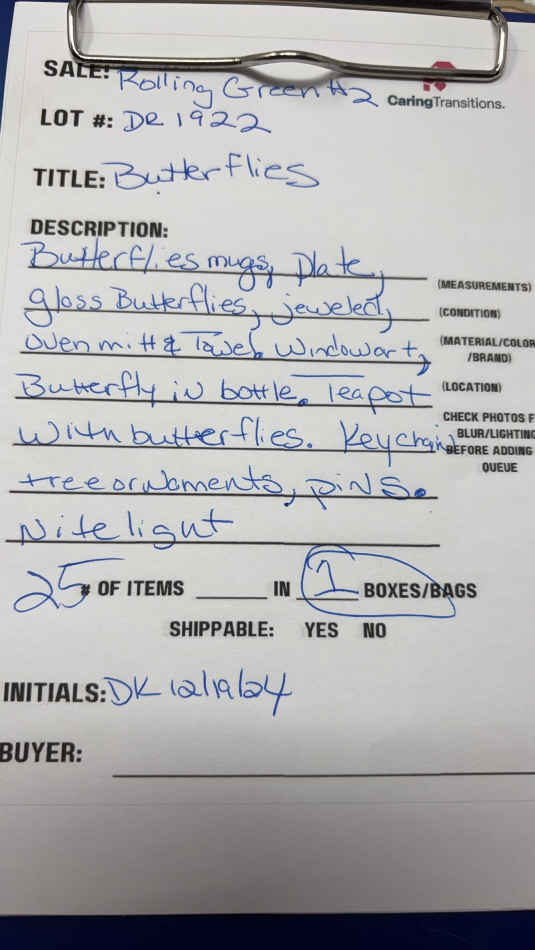 SALE: Rolling Green #2
CaringTransitions.
LOT #: DR 1922
TITLE: Butterflies
DESCRIPTION:
Butterflies mugs, plate,
(MEASUREMENTS)
gloss Butterflies, jeweled,
(CONDITION)
oven mitt & Towel, Windowart,
(MATERIAL/COLOR
/BRAND)
Butterfly in bottle. Teapot
(LOCATION)
With butterflies. Keychain
CHECK PHOTOS F
BLUR/LIGHTING
BEFORE ADDING
QUEUE
tree ornaments, pins.
Nitelight
25 # OF ITEMS ______ IN 1 BOXES/BAGS
SHIPPABLE: YES NO
INITIALS: DK 12/19/24
BUYER: